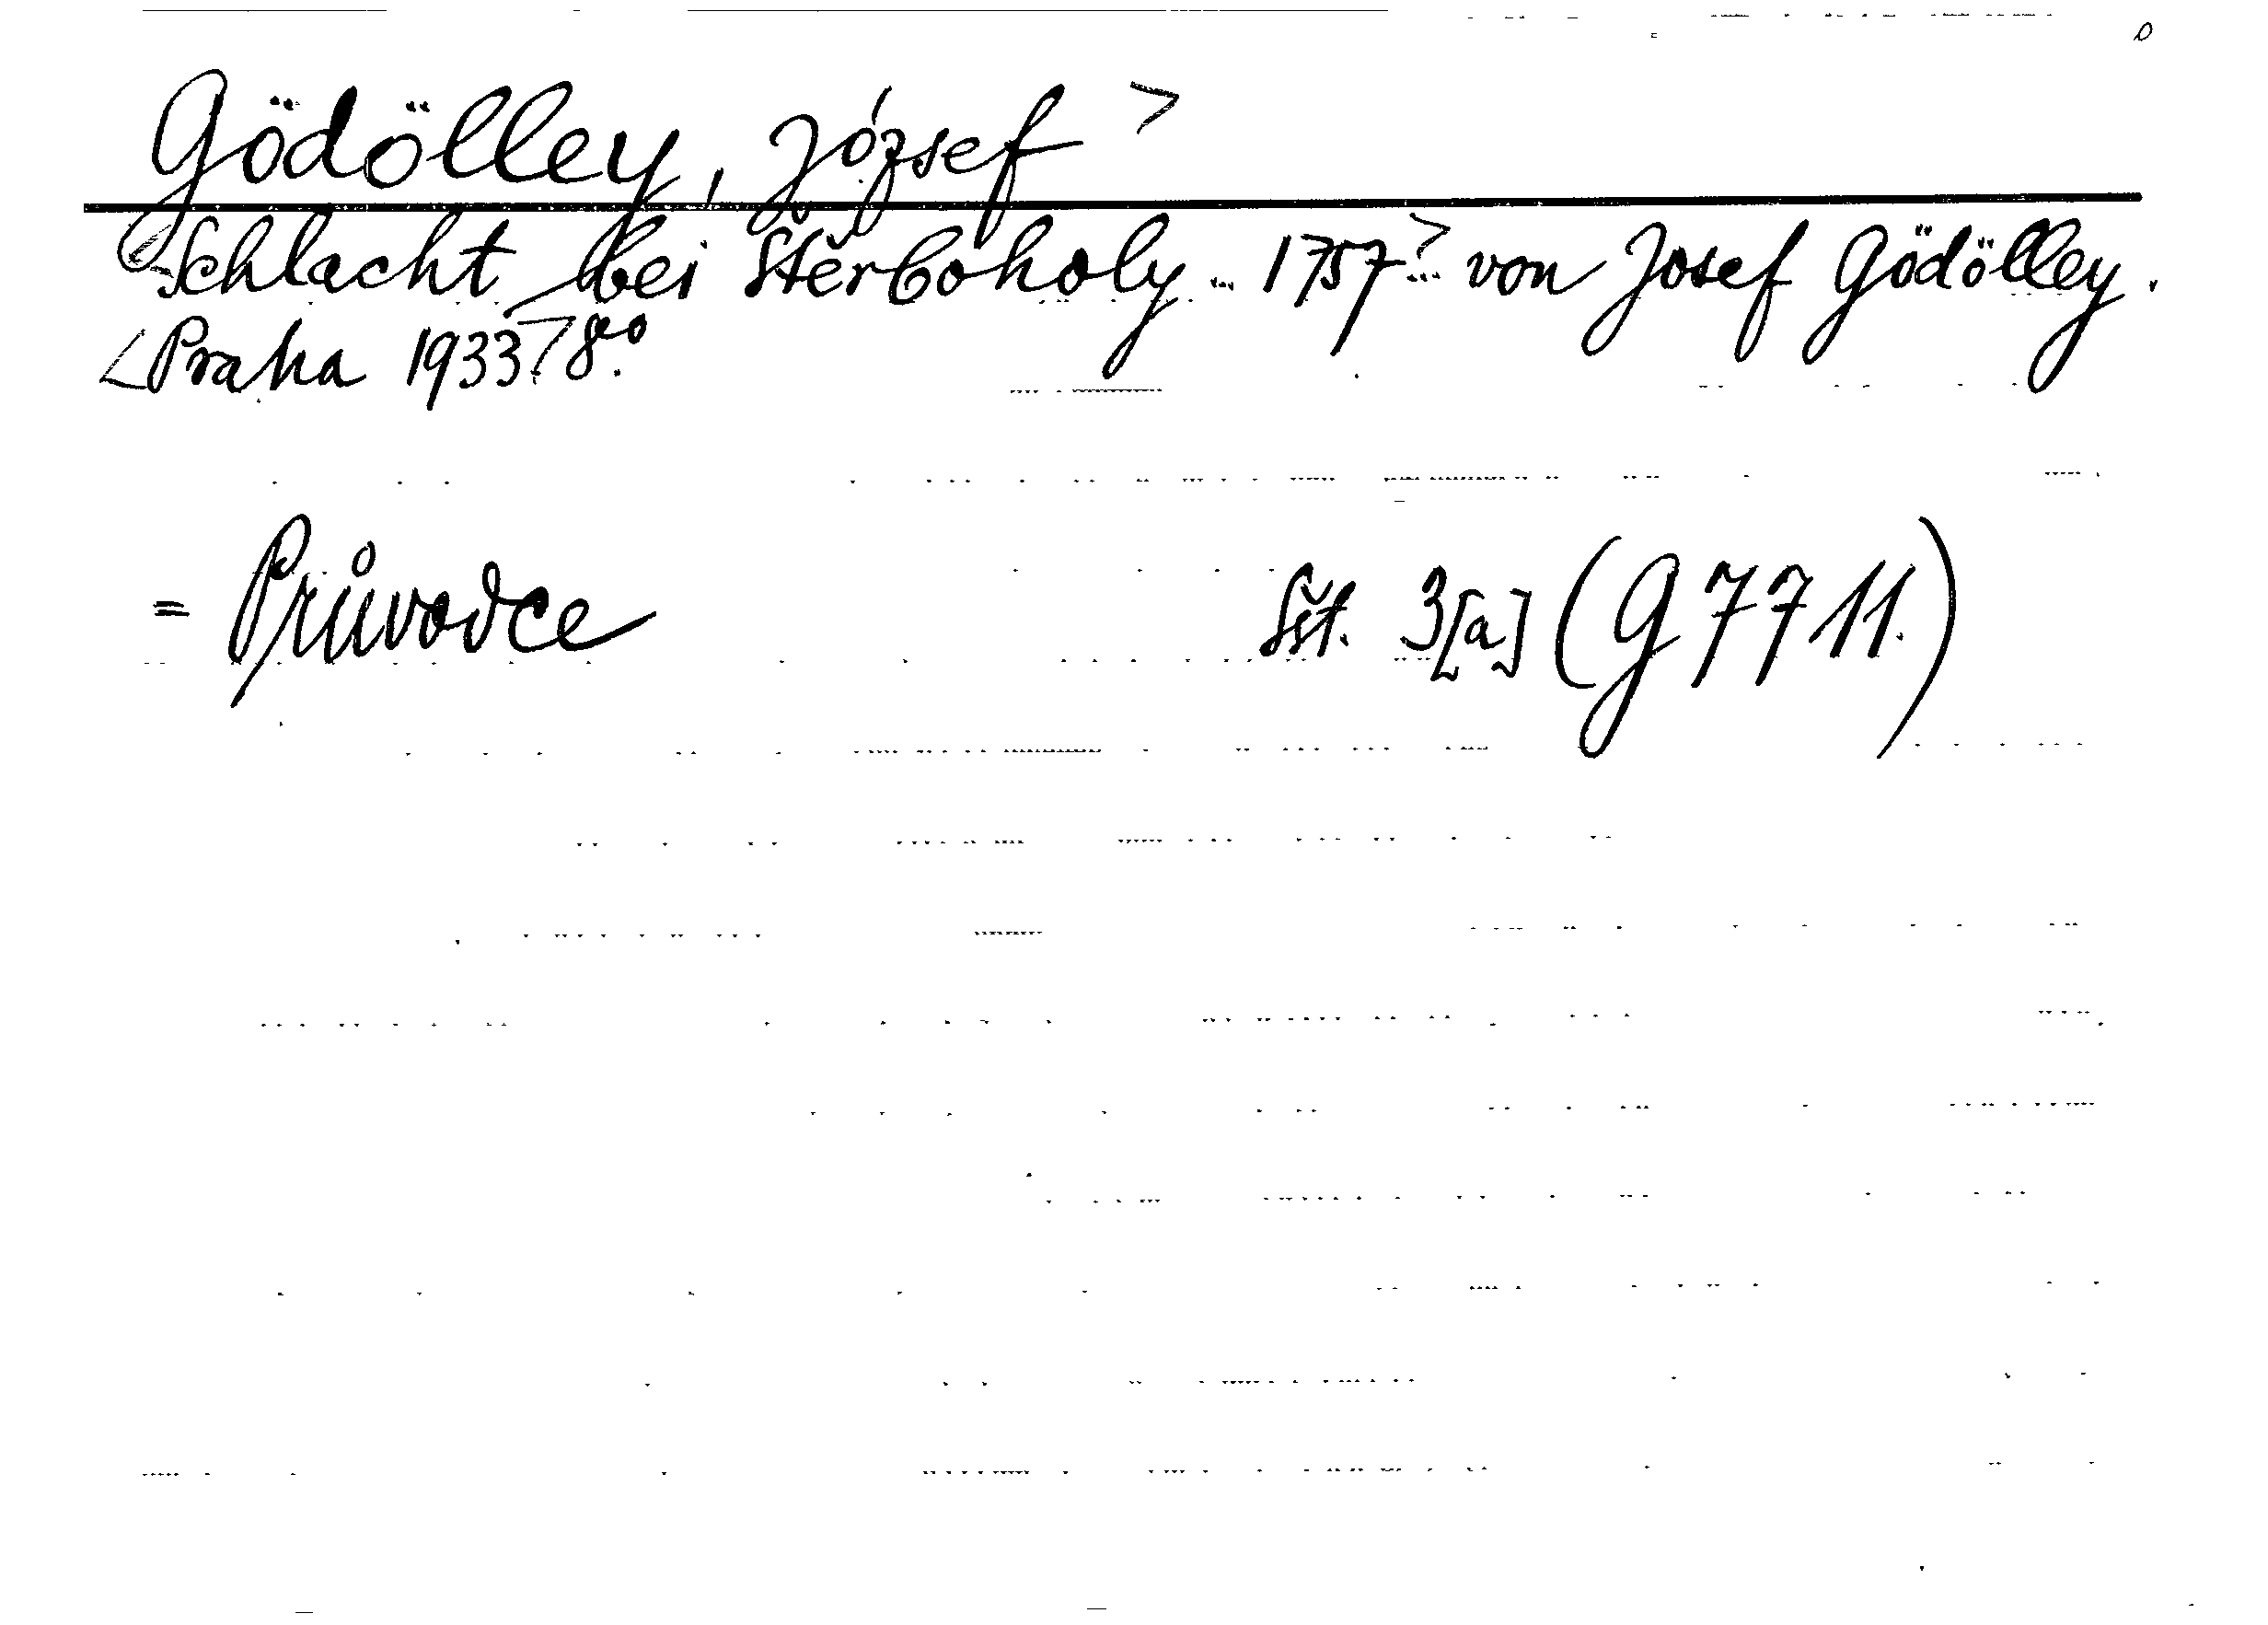 Gödölley, József >
<Schlacht bei Štěrboholy ... 1757> ... von Josef Gödölley.
<Praha 1933> 8º.
= Průvodce Sšt. 3[a] (G 7711.)